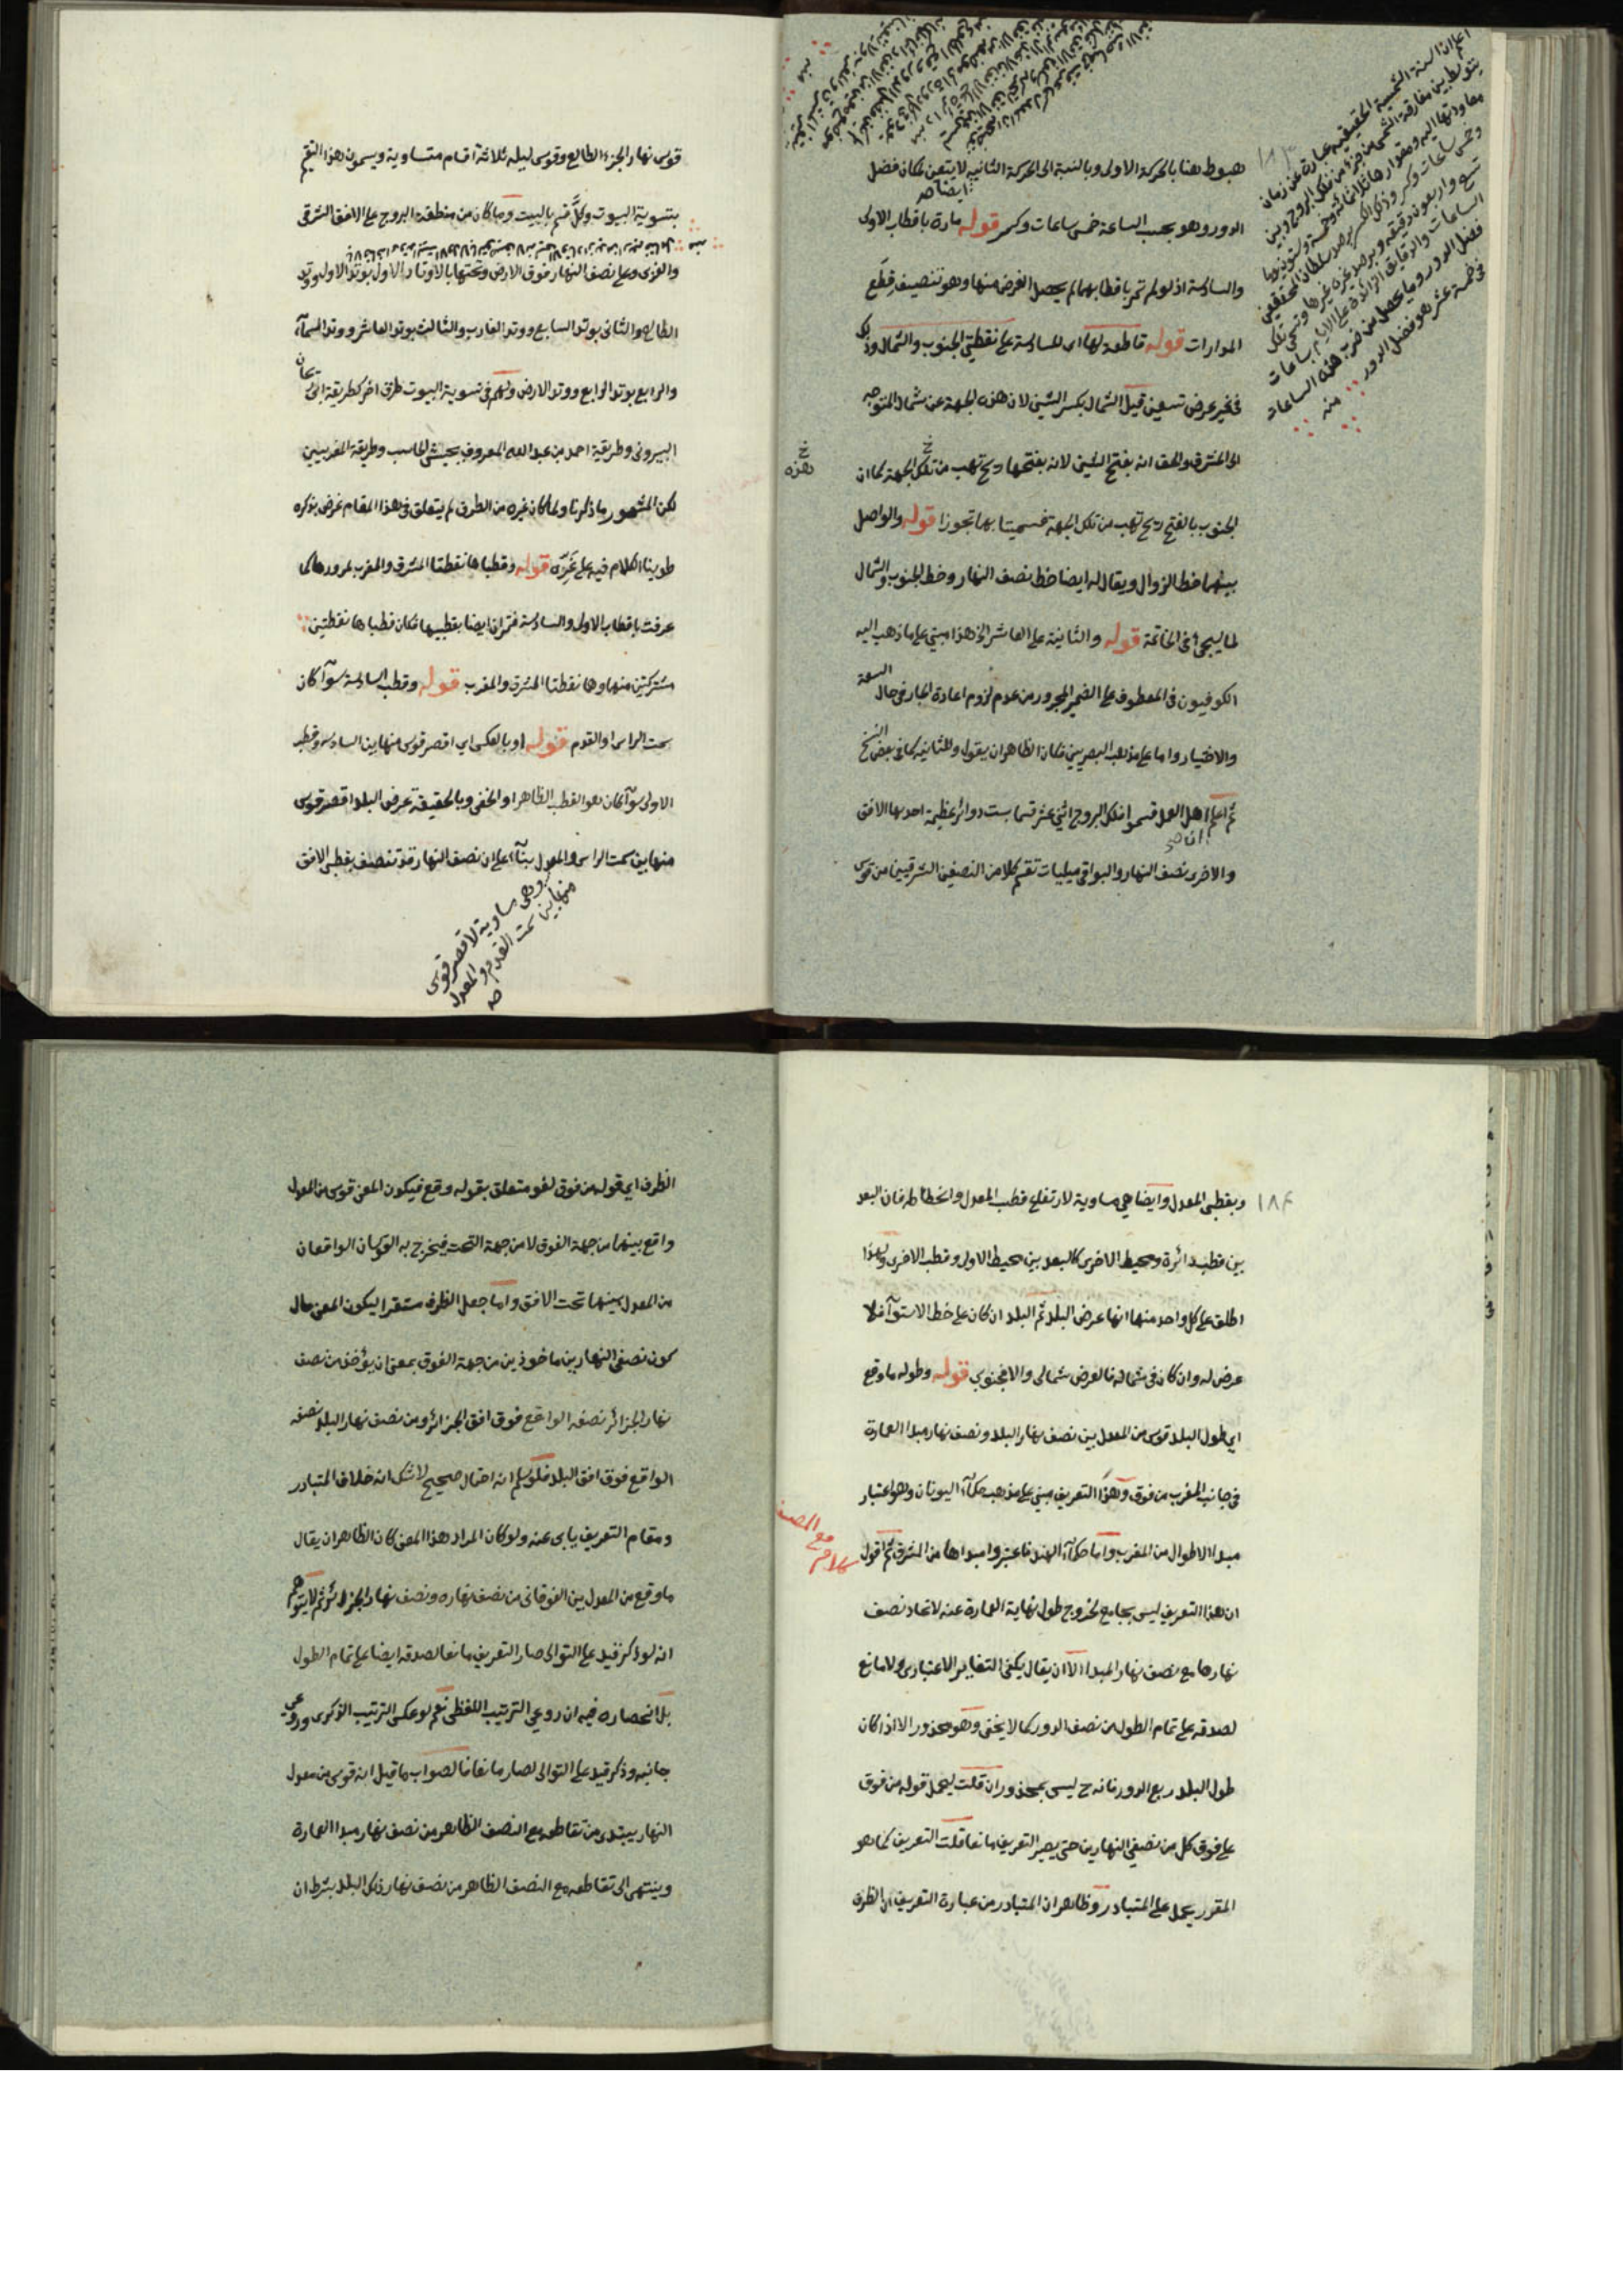 هبوط هنا بالحركة الاولى وبالنسبة الى الحركة الثانية لا يتعين لمكان فضل
الدور وهو بحسب الساعة خمس ساعات وكسر قوله مارة باقطاب الاولى
والسادسة اذ لو لم تمر باقطابهما لم يحصل الغرض منها وهو تنصيف قطع
المدارات قوله قاطعة لها اى للسادسة على نقطتي الجنوب والشمال وذلك
في غير عرض تسعين قيل الشمال بكسر الشين لان هذه الجهة عن شمال المتوجه
الى المشرق والحق انه بفتح الشين لانه بفتحها ريح تهب من تلك الجهة كما ان
هذه
الجنوب بالفتح ريح تهب من تلك الجهة فسميتا بها تجوزا قوله والواصل
بينهما خط الزوال ويقال له ايضا خط نصف النهار وخط الجنوب والشمال
لما يجئ في الخاتمة قوله والثانية على العاشر الخ هذا مبني على ما ذهب اليه
الكوفيون في المعطوف على الضمير المجرور من عدم لزوم اعادة الجار في حال السعة
والاختيار واما على مذهب البصريين فكان الظاهر ان يقول وللثانية كما في بعض النسخ
ثم اعلم ان اهل العمل قسموا فلك البروج اثني عشر قسما بست دوائر عظيمة احديها الافق
والاخرى نصف النهار والبواقي ميليات تقسم كلا من النصفين الشرقيين من قوس
اعلم ان السنة الشمسية الحقيقية عبارة عن زمان
يتوسط بين مفارقة الشمس من جزء من فلك البروج وبين
معاودتها اليه ومقدارها ثلاثمائة وخمسة وستون يوما
وخمس ساعات وكسر وذلك الكسر برصد سلطان المحققين
تسع واربعون دقيقة وبرصد غيره غيرها وتسمى تلك
الساعات والدقايق الزائدة على الايام بساعات
فضل الدور وما يحصل من ضرب هذه الساعات
في خمسة عشر هو فضل الدور
منه
قوس نهار الجزء الطالع وقوس ليله ثلاثة اقسام متساوية ويسمون هذا التقسيم
بتسوية البيوت وكل قسم بالبيت وما كان من منطقة البروج على الافق الشرقي
والغربي وعلى نصف النهار فوق الارض وتحتها بالاوتاد الاول بوتد الاول ووتد
الطالع والثاني بوتد السابع ووتد الغارب والثالث بوتد العاشر ووتد السماء
والرابع بوتد الرابع ووتد الارض ولهم في تسوية البيوت طرق اخر كطريقة ابى ريحان
البيروني وطريقة احمد بن عبد الله المعروف بحبش الحاسب وطريقة المغربيين
لكن المشهور ما ذكرنا ولما كان غيره من الطرق لم يتعلق في هذا المقام غرض بذكره
طوينا الكلام فيه على غره قوله وقطباها نقطتا المشرق والمغرب لمرورها كما
عرفت باقطاب الاولى والسادسة فتمران ايضا بقطبيها فكان قطباها نقطتين
مشتركتين منها وهما نقطتا المشرق والمغرب قوله وقطب السادسة سوآ كان
سمت الراس او القدم قوله او بالعكس اي اقصر قوس منها بين السادسة وقطب
الاولى سوآ كان هو القطب الظاهر او الخفى وبالحقيقة عرض البلد اقصر قوس
منها بين سمت الراس والمعدل بنآء على ان نصف النهار قد تنصف بقطبى الافق
وهى مساوية لاقصر قوس
منها بين سمت القدم والمعدل
صح
١٨٤
وبقطبى المعدل وايضا هي مساوية لارتفاع قطب المعدل وانحطاطه فان البعد
بين قطب دائرة ومحيط الاخرى كالبعد بين محيط الاولى وقطب الاخرى ولهذا
اطلق على كل واحد منها انها عرض البلد ثم البلد ان كان على خط الاستوآ فلا
عرض له وان كان في شماله فالعرض شمالى والا فجنوبي قوله وطوله ما وقع
اي طول البلد قوس من المعدل بين نصف نهار البلد ونصف نهار مبدا العمارة
في جانب المغرب من فوق وهذا التعريف مبني على مذهب حكمآء اليونان وهو اعتبار
مبدا الاطوال من المغرب واما حكمآء الهند فاعتبروا مبداها من المشرق ثم اقول
كلام مع المصنف
ان هذا التعريف ليس بجامع لخروج طول نهاية العمارة عنه لاتحاد نصف
نهارها مع نصف نهار المبدا الا ان يقال يكفى التغاير الاعتبارى ولا مانع
لصدقه على تمام الطول من نصف الدور كما لا يخفى وهو محذور الا اذا كان
طول البلد ربع الدور فانه ح ليس بمحذور ان قلت ليحمل قوله من فوق
على فوق كل من نصفي النهارين حتى يصير التعريف مانعا قلت التعريف كما هو
المقرر يحمل على المتبادر وظاهر ان المتبادر من عبارة التعريف ان الظرف
الظرف اي قوله من فوق لغو متعلق بقوله وقع فيكون المعنى قوس من المعدل
واقع بينهما من جهة الفوق لا من جهة التحت فيخرج به القوسان الواقعان
من المعدل بينهما تحت الافق واما جعل الظرف مستقرا ليكون المعنى حال
كون نصفى النهارين ماخوذين من جهة الفوق بمعنى ان يؤخذ من نصف
نهار الجزائر نصفه الواقع فوق افق الجزائر ومن نصف نهار البلد نصفه
الواقع فوق افق البلد فلو سلم انه احتمال صحيح لا شك انه خلاف المتبادر
ومقام التعريف يابى عنه ولو كان المراد هذا المعنى كان الظاهر ان يقال
ما وقع من المعدل بين الفوقانى من نصف نهاره ونصف نهار الجزائر ثم لا يتوهم
انه لو ذكر قيد على التوالى صار التعريف مانعا لصدقه ايضا على تمام الطول
بل انحصاره فيه ان روعي الترتيب اللفظى نعم لو عكس الترتيب الذكرى وروعي
جانبه وذكر قيد على التوالى لصار مانعا فالصواب ما قيل انه قوس من معدل
النهار يبتدى من تقاطعه مع النصف الظاهر من نصف نهار مبدا العمارة
وينتهى الى تقاطعه مع النصف الظاهر من نصف نهار ذلك البلد بشرط ان